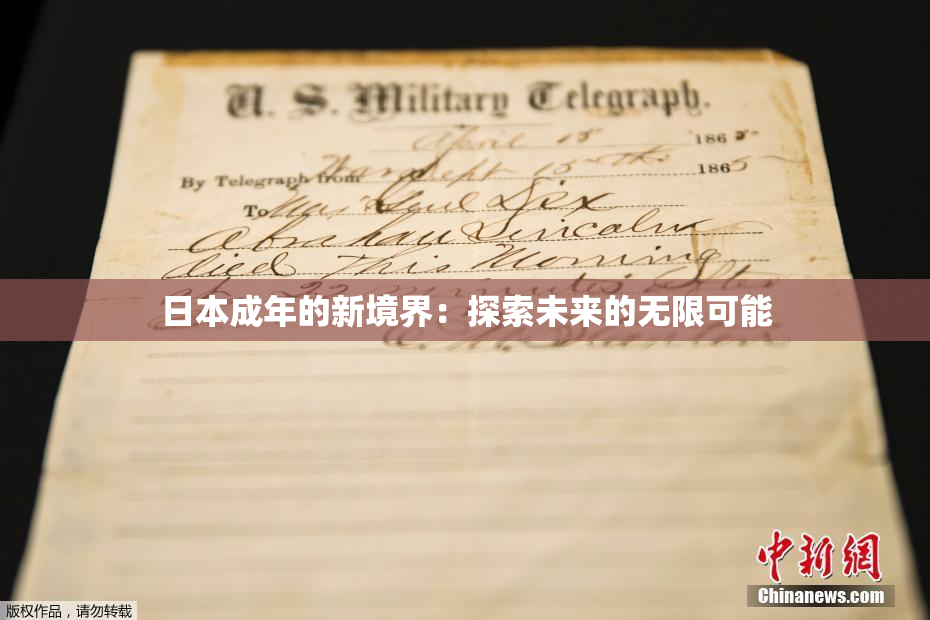 U. S. Military Telegraph.
April 15 1865
By Telegraph from War Dept 15th 1865
To Maj Genl Dix
Abraham Lincoln
died This Morning
at 22 minutes after
日本成年的新境界：探索未来的无限可能
E. M. Stanton
中新网
Chinanews.com
版权作品，请勿转载